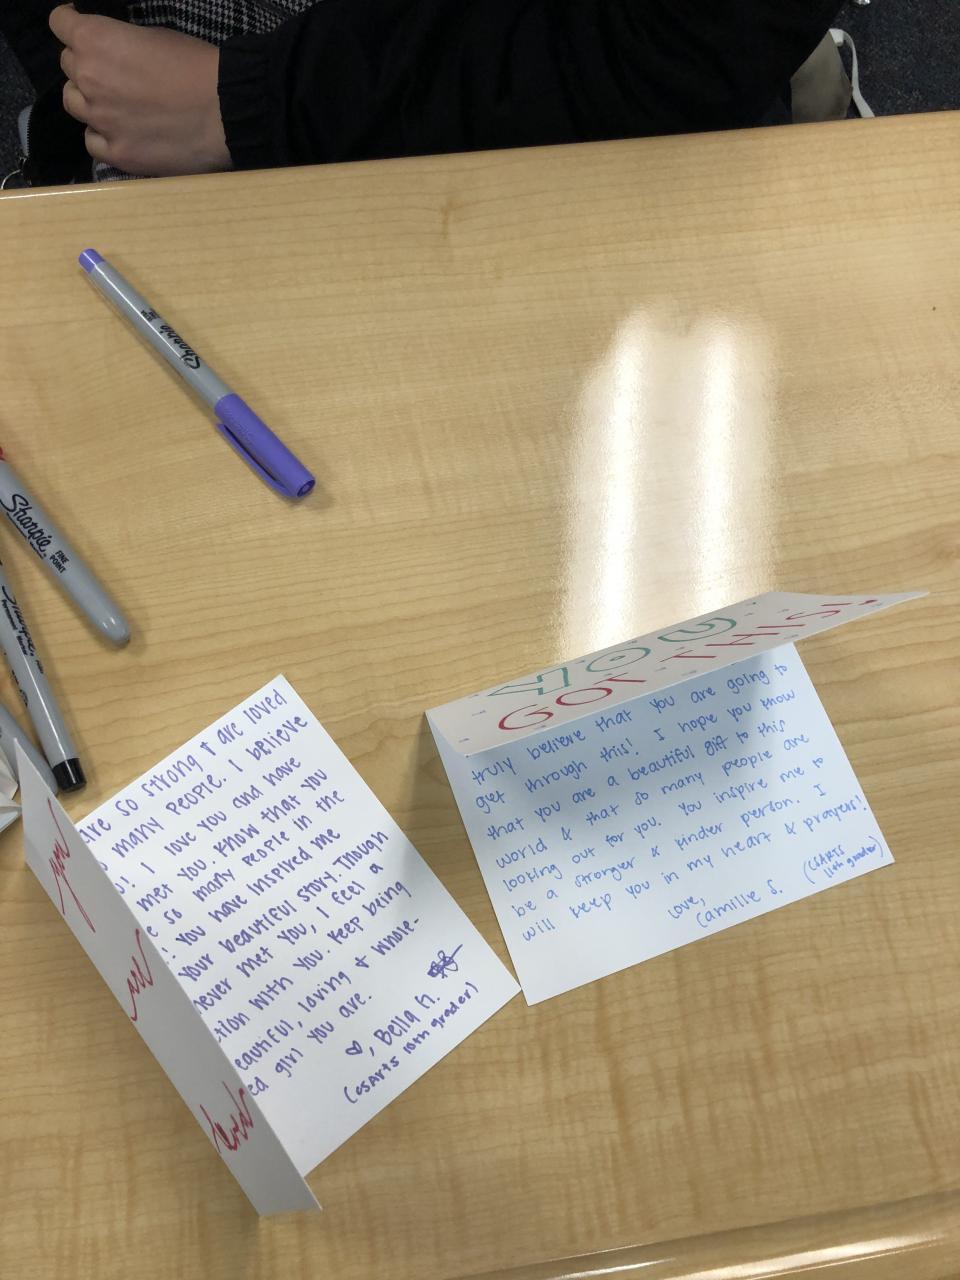 Sharpie
Sharpie
FINE
POINT
Sharpie
you
are
loved
are so strong & are loved
many people. I believe
! I love you and have
met you. Know that you
so many people in the
you have inspired me
your beautiful story. Though
never met you, I feel a
with you. Keep being
eautiful, loving & whole-
ed girl you are.
♡, Bella H.
(OSArts 10th grader)
YOU
GOT THIS!
truly believe that you are going to
get through this! I hope you know
that you are a beautiful gift to this
world & that so many people are
looking out for you. You inspire me to
be a stronger & kinder person. I
will keep you in my heart & prayers!
Love,
Camille S.
(OSArts
11th grader)